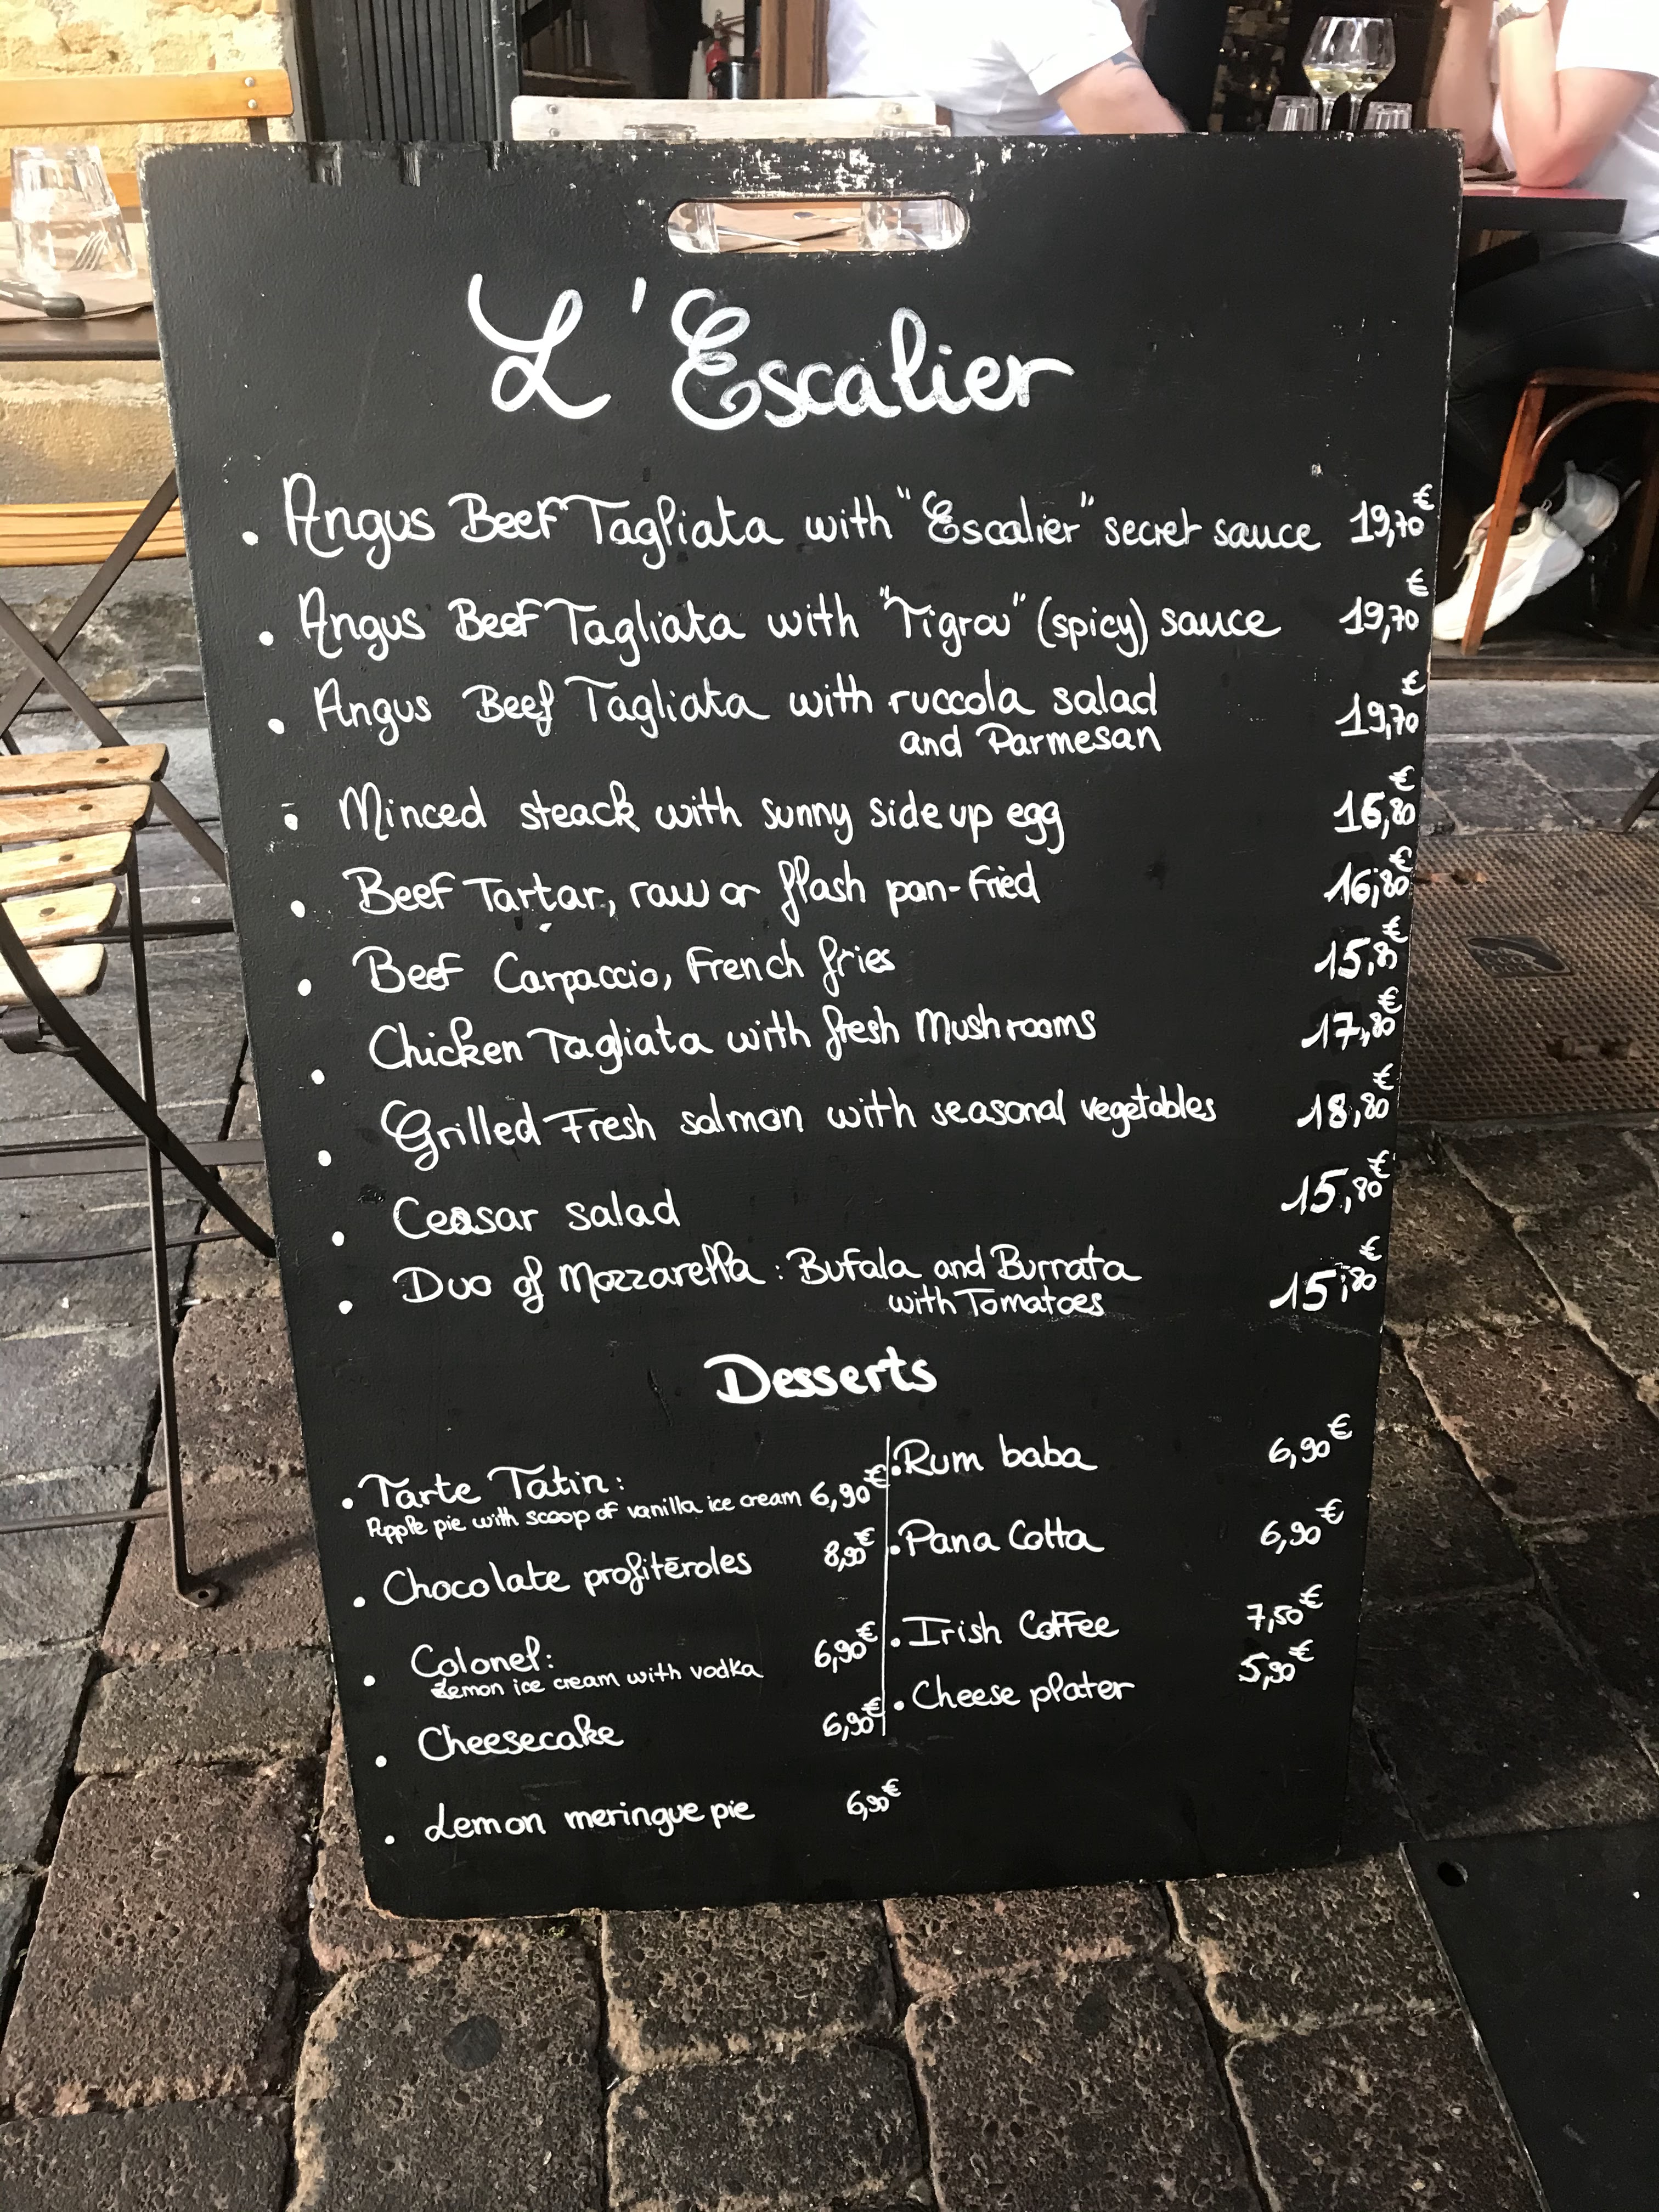 L'Escalier
. Angus Beef Tagliata with "Escalier" secret sauce 19,70€
. Angus Beef Tagliata with "Tigrou" (spicy) sauce 19,70€
. Angus Beef Tagliata with ruccola salad 19,70€
and Parmesan
. Minced steack with sunny side up egg 16,80€
. Beef Tartar, raw or flash pan-fried 16,80€
. Beef Carpaccio, French fries 15,80€
. Chicken Tagliata with fresh Mushrooms 17,80€
. Grilled Fresh salmon with seasonal vegetables 18,80€
. Ceasar salad 15,80€
. Duo of Mozzarella : Bufala and Burrata 15,80€
with Tomatoes
Desserts
. Tarte Tatin :
Apple pie with scoop of vanilla ice cream 6,90€
. Chocolate profitēroles 8,90€
. Colonel : 6,90€
Lemon ice cream with vodka
. Cheesecake 6,90€
. Lemon meringue pie 6,90€
. Rum baba 6,90€
. Pana Cotta 6,90€
. Irish Coffee 7,50€
. Cheese plater 5,90€